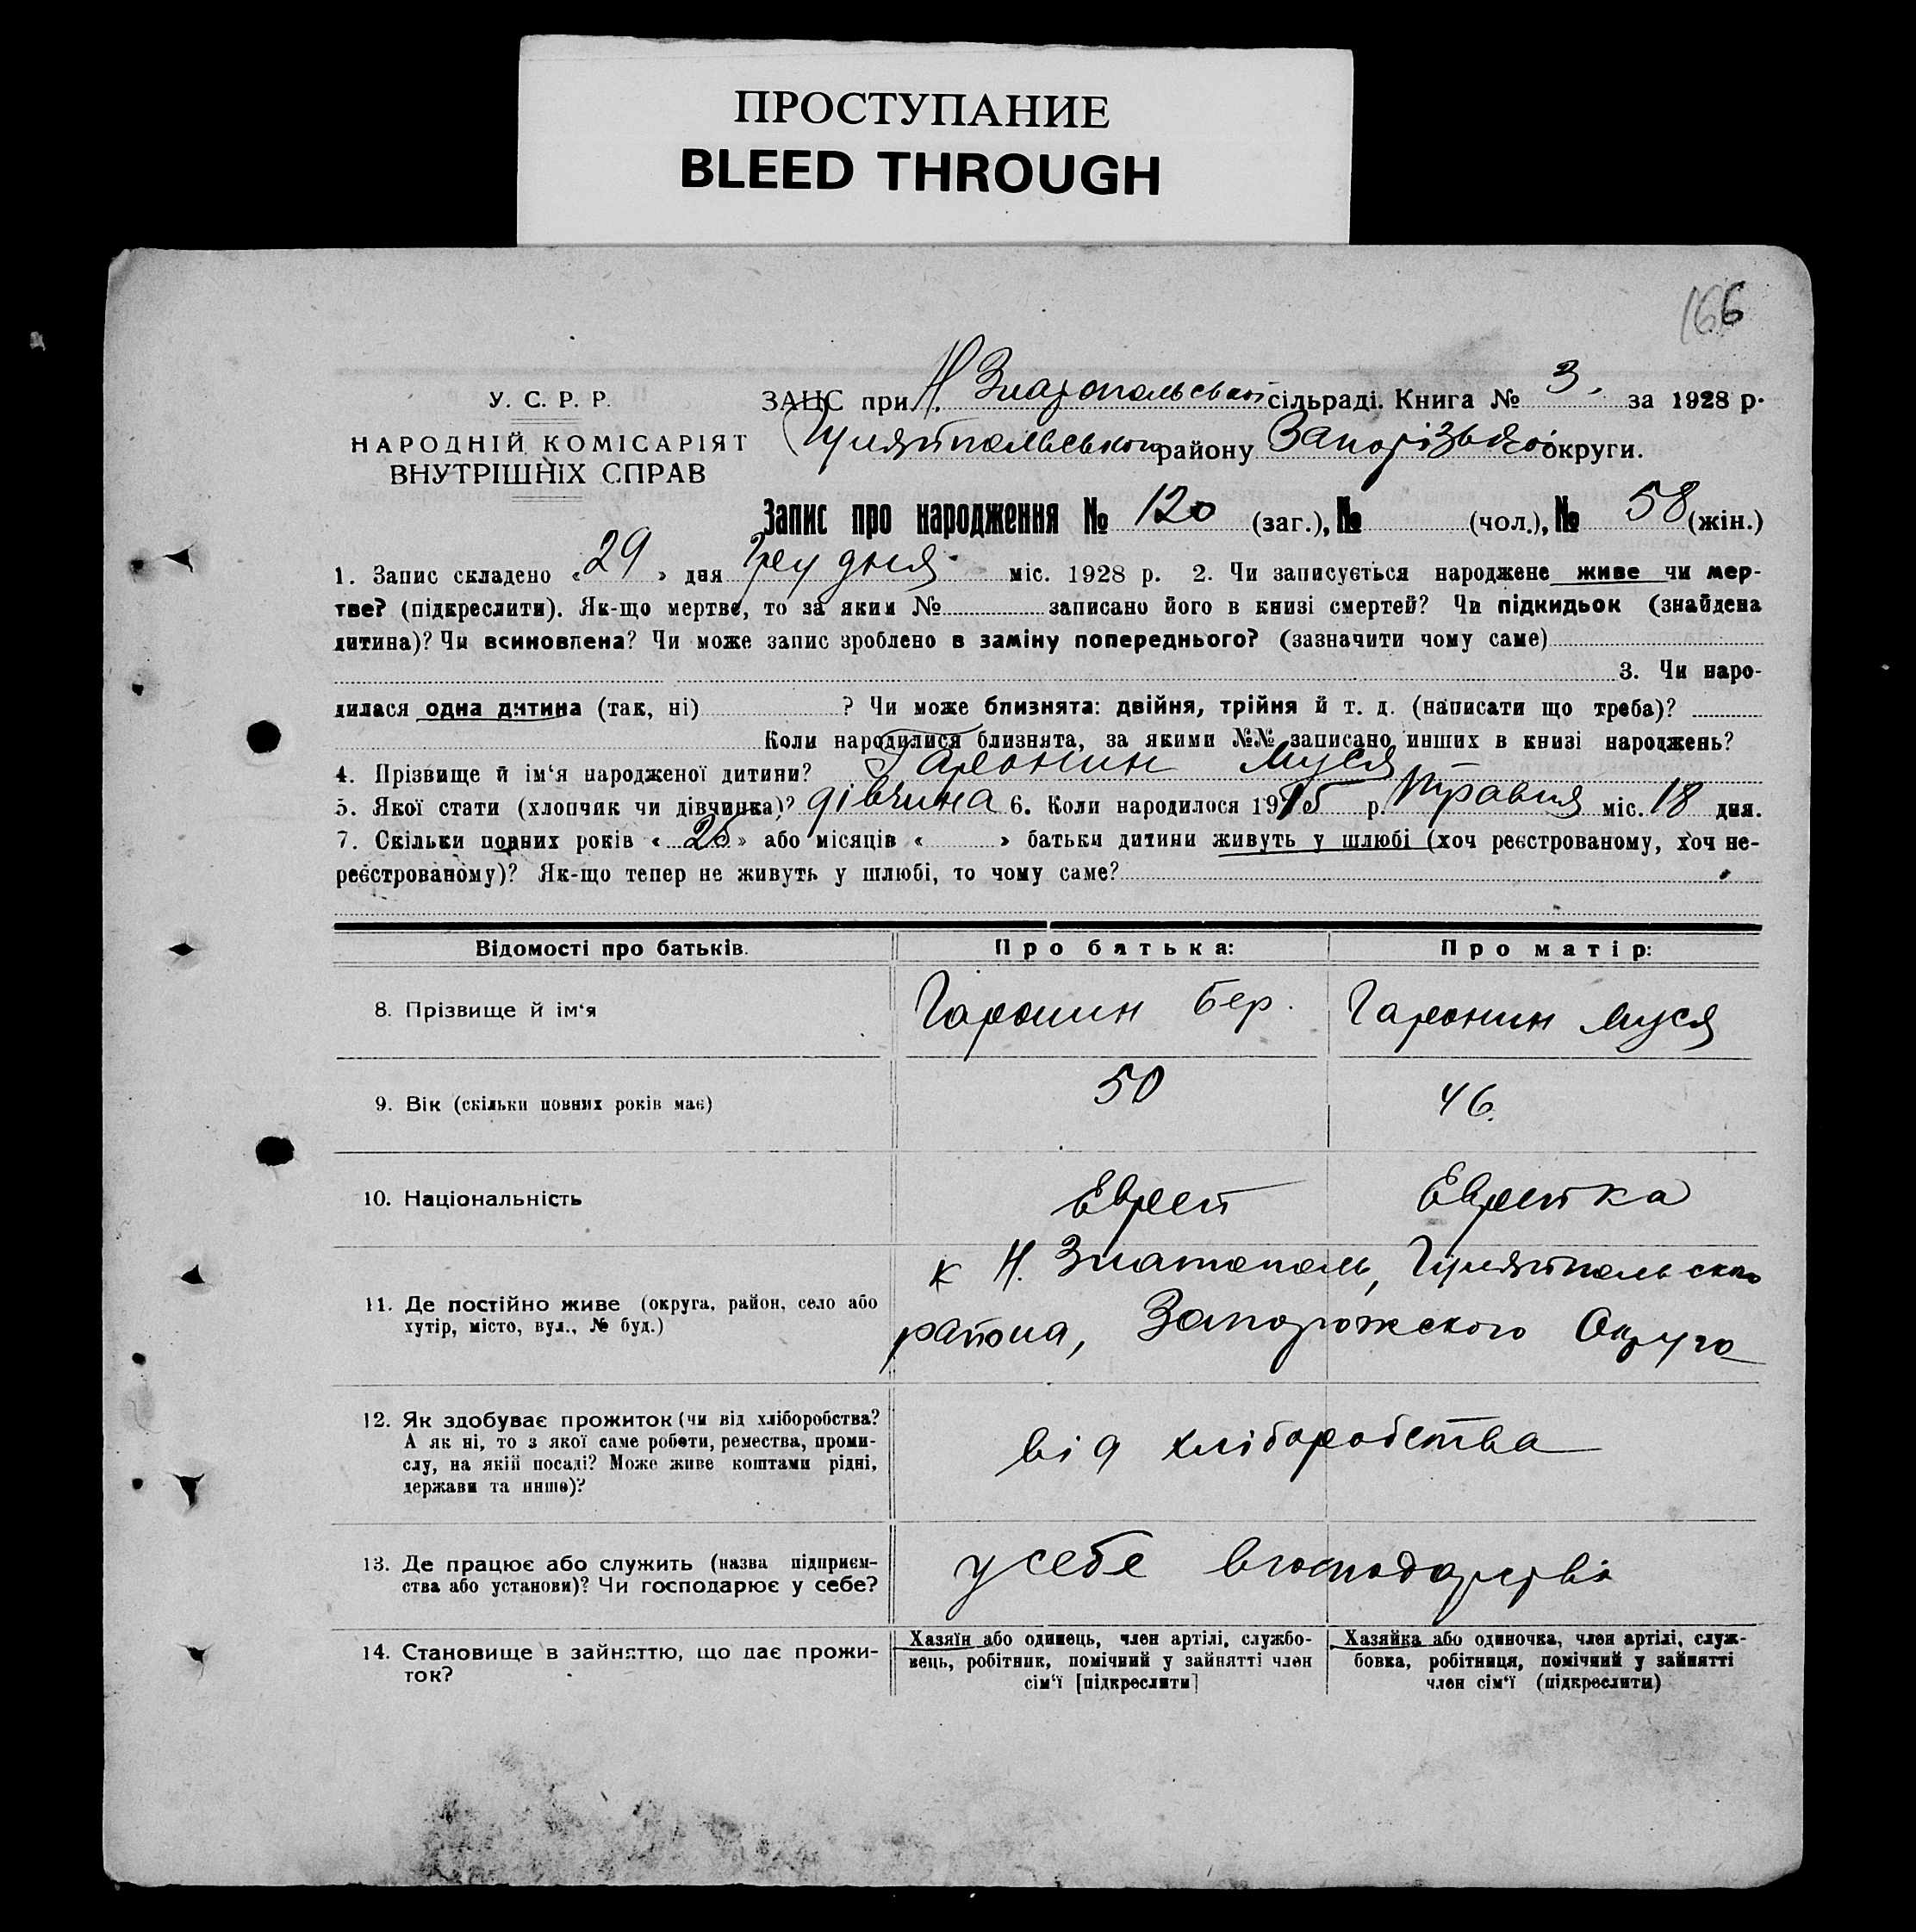 ПРОСТУПАНИЕ
BLEED THROUGH
166
У. С. Р. Р.
НАРОДНІЙ КОМІСАРІЯТ
ВНУТРІШНІХ СПРАВ
ЗАЦС при Н. Златопольській сільраді. Книга № 3. за 1928 р.
району Запорізької округи.
Запис про народження № 120 (заг.), № (чол.), № 58 (жін.)
1. Запис складено « 29 » дня Грудня міс. 1928 р. 2. Чи записується народжене живе чи мер-
тве? (підкреслити). Як-що мертве, то за яким № записано його в книзі смертей? Чи підкидьок (знайдена
дитина)? Чи всиновлена? Чи може запис зроблено в заміну попереднього? (зазначити чому саме)
3. Чи наро-
дилася одна дитина (так, ні) ? Чи може близнята: двійня, трійня й т. д. (написати що треба)?
Коли народилися близнята, за якими №№ записано инших в книзі народжень?
4. Прізвище й ім‘я народженої дитини? Гаронин Муся
5. Якої стати (хлопчик чи дівчинка)? дівчина 6. Коли народилося 1915 р. Травня міс. 18 дня.
7. Скільки повних років « 26 » або місяців « » батьки дитини живуть у шлюбі (хоч реєстрованому, хоч не-
реєстрованому)? Як-що тепер не живуть у шлюбі, то чому саме?
Відомості про батьків. Про батька: Про матір:
8. Прізвище й ім‘я Гаронин Бер. Гаронин Муся
9. Вік (скільки повних років має) 50 46.
10. Національність Еврей Еврейка
к Н. Златополь,
11. Де постійно живе (округа, район, село або
хутір, місто, вул., № буд.)
района, Запорожского Округа
12. Як здобуває прожиток (чи від хліборобства?
А як ні, то з якої саме роботи, ремества, проми-
слу, на якій посаді? Може живе коштами рідні,
держави та инше)?
від хліборобства
13. Де працює або служить (назва підприєм-
ства або установи)? Чи господарює у себе?
у себе в господарстві
14. Становище в зайняттю, що дає прожи-
ток?
Хазяїн або одинець, член артілі, службо-
вець, робітник, помічний у зайнятті член
сім‘ї [підкреслити]
Хазяйка або одиночка, член артілі, служ-
бовка, робітниця, помічний у зайнятті
член сім‘ї (підкреслити)